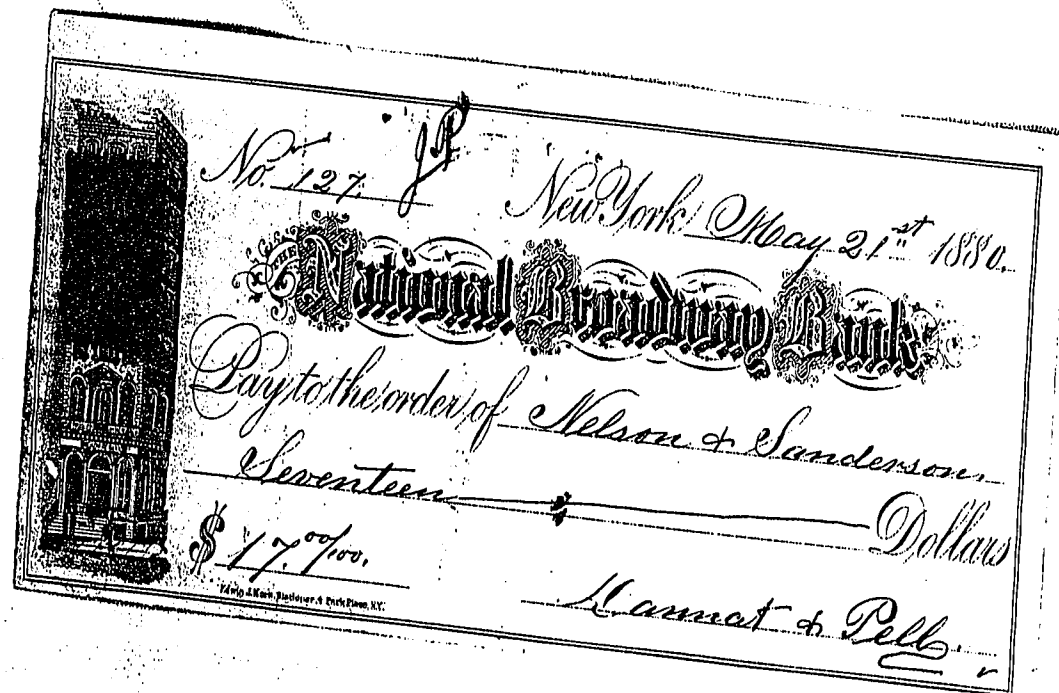 No. 127. JP
New York May 21st 1880.
THE National Broadway Bank
Pay to the order of Nelson & Sanderson.
Seventeen Dollars
$ 17.00/100.
Stationer, 4 Park Place, N.Y.
& Pell